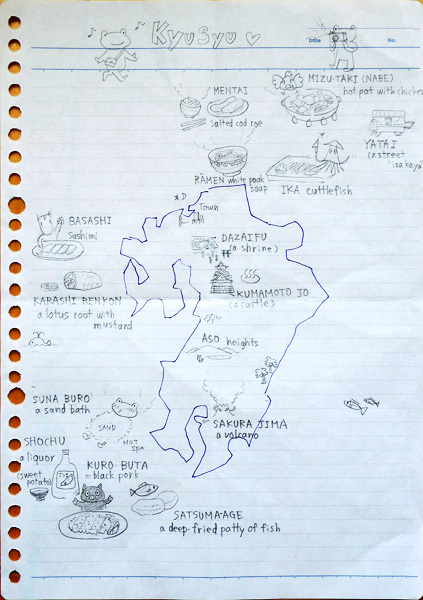 Kyusyu ♡
Date
No.
MENTAI
salted cod roe
MIZU-TAKI (NABE)
hot pot with chicken
YATAI
(a street
"izakaya"
RAMEN white poak
soap
IKA cuttlefish
Town
BASASHI
Sashimi
DAZAIFU
(a shrine)
KUMAMOTO JO
(a castle)
KARASHI RENKON
a lotus root with
mustard
ASO heights
SUNA BURO
a sand bath
SAND
HOT
spa
SAKURA JIMA
a volcano
SHOCHU
a liquor
(sweet
potato)
KURO-BUTA
= black pork
SATSUMA-AGE
a deep-fried patty of fish